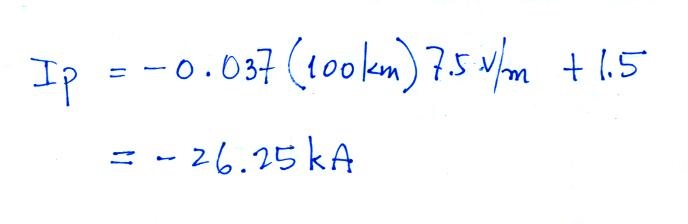 Ip = -0.037 (100 km) 7.5 V/m + 1.5
= - 26.25 kA